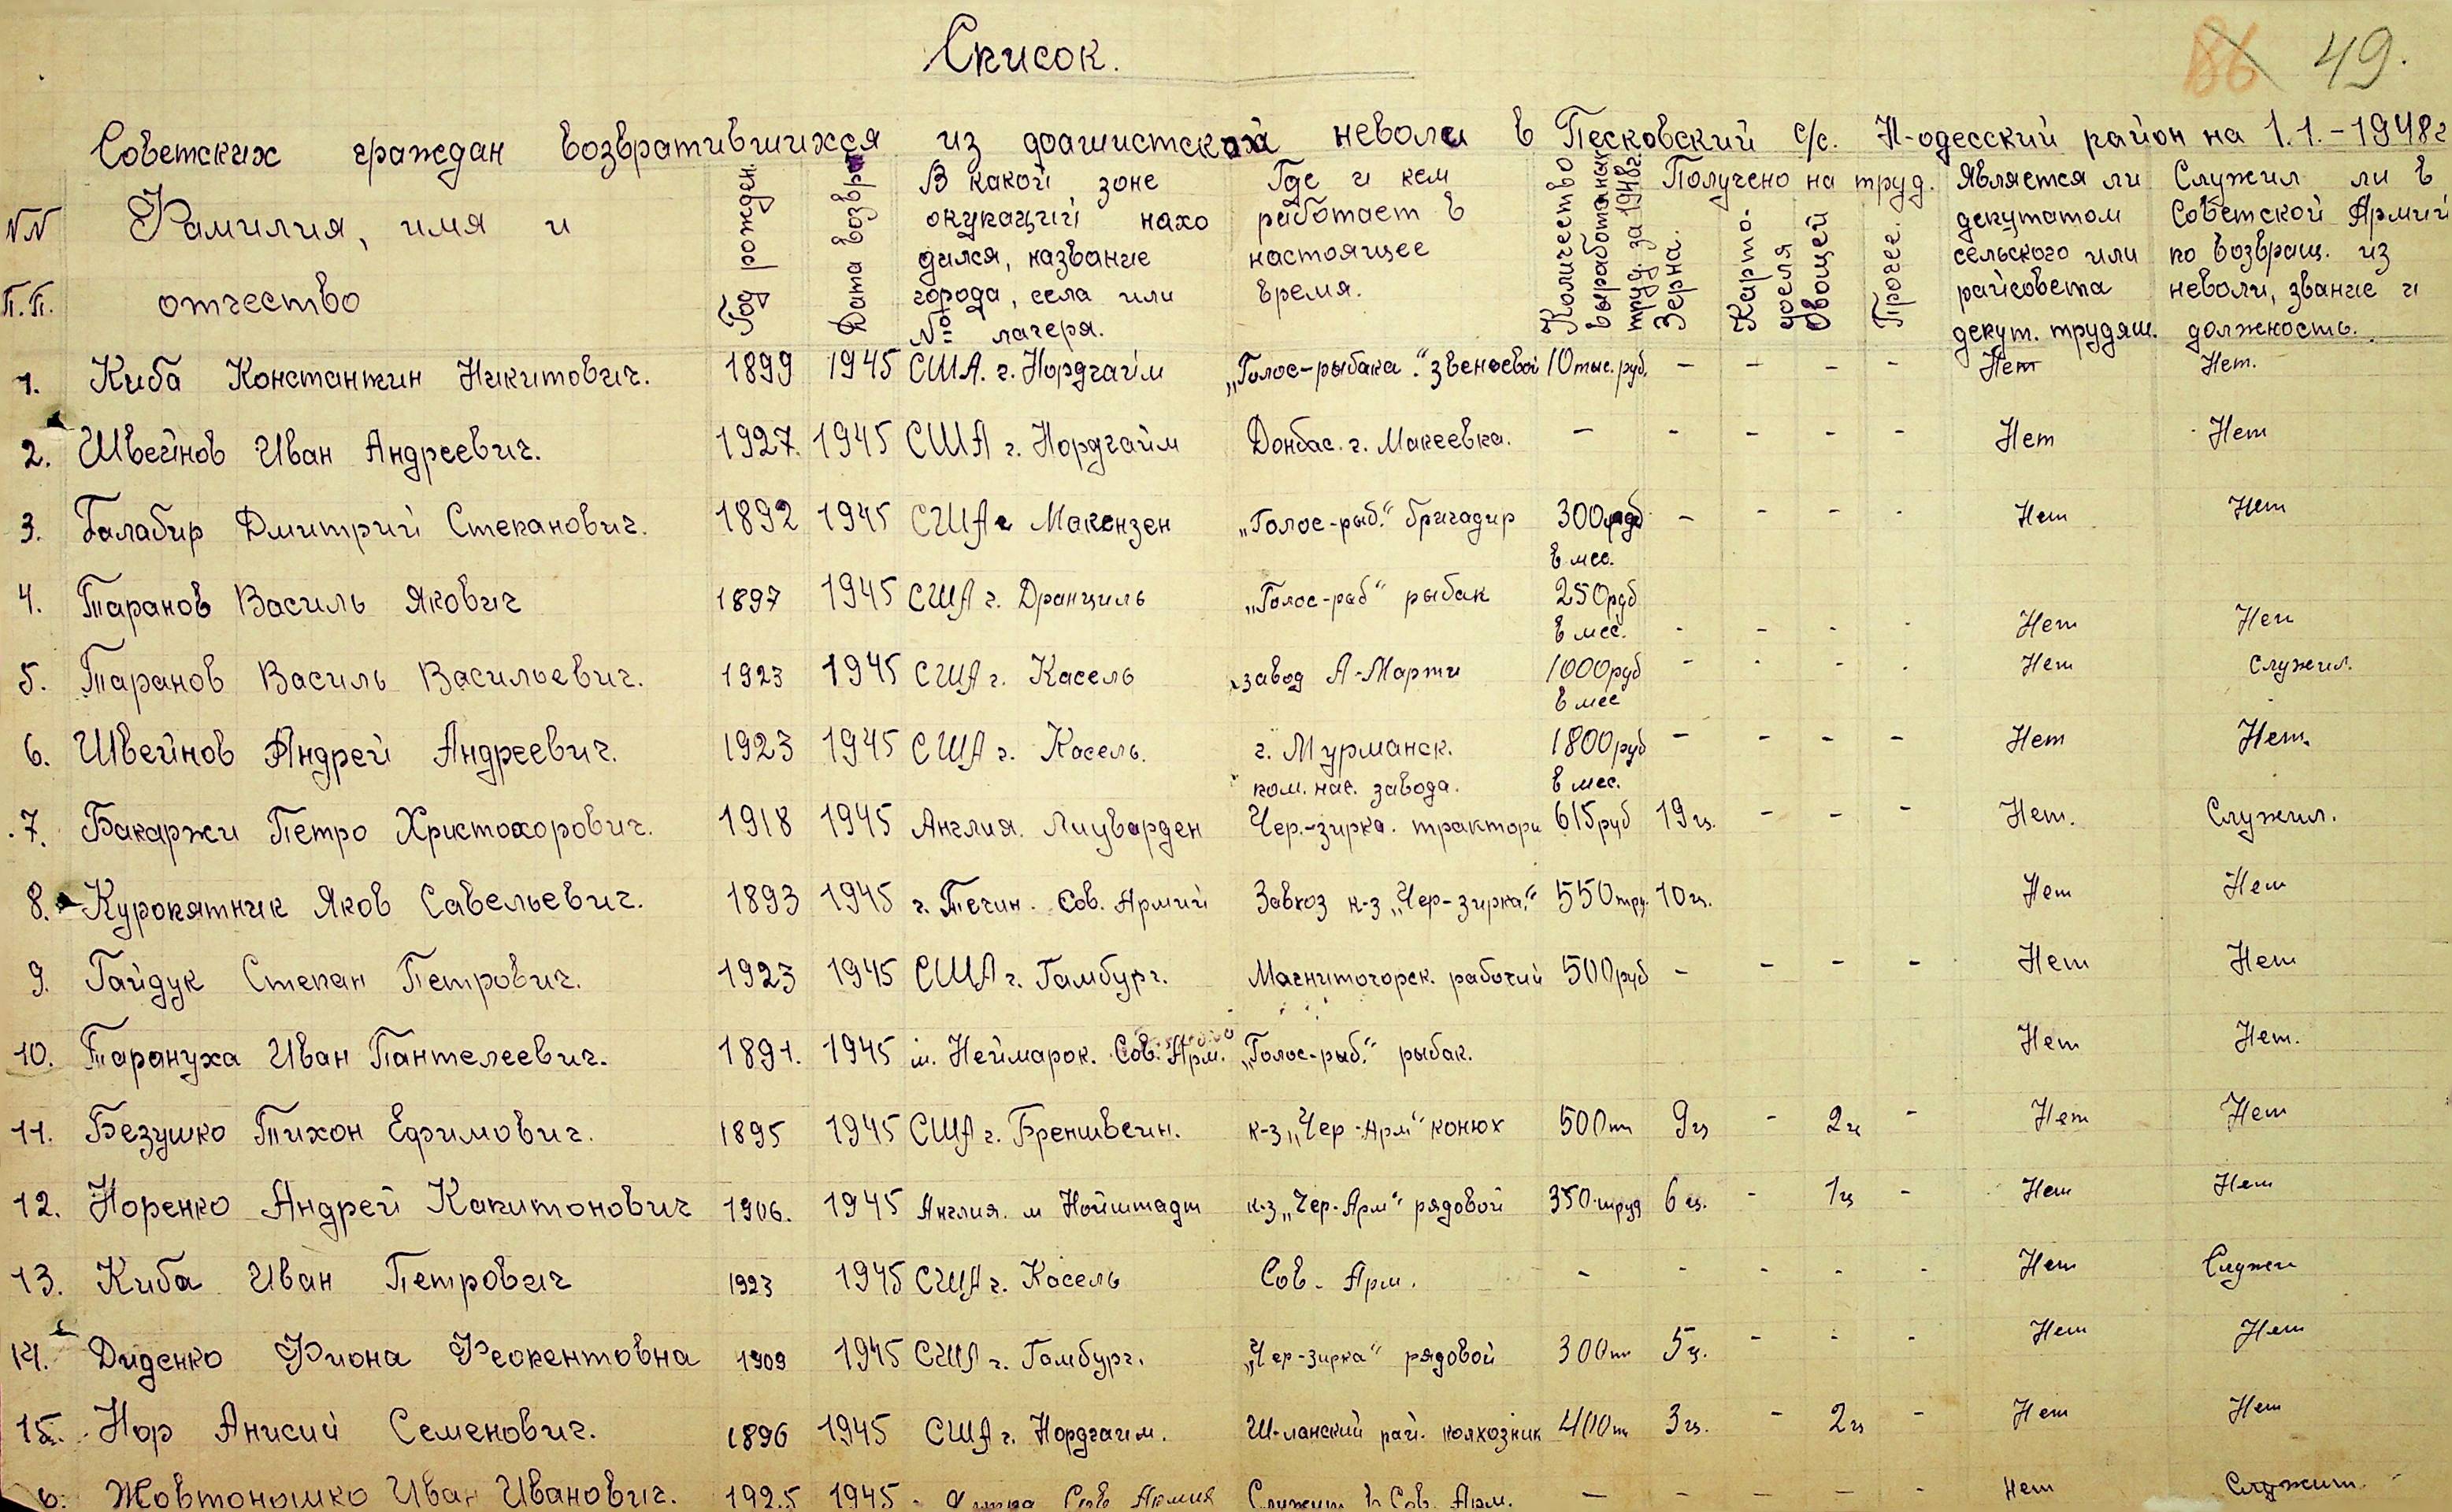 Список.
86 49.
Советских граждан возвратившихся из фашисткой неволи в Песковский с/с. Н-одесский район на 1.1.-1948г
NN п.п. Фамилия, имя и отчество Год рожден. Дата возвр. В какой зоне окупаций находился, название города, села или № лагеря. Где и кем работает в настоящее время. Количество выработанных труд. за 1948г. Получено на труд. Зерна. Картофеля Овощей Прочее. Является ли депутатом сельского или райсовета депут. трудящ. Служил ли в Советской Армий по возвращ. из неволи, звание и должность.
1. Киба Константин Никитович. 1899 1945 США. г. Нордгайм „Голос-рыбака." звеневой 10 тыс. руб. - - - - Нет Нет.
2. Швейнов Иван Андреевич. 1927. 1945 США г. Нордгайм Донбас. г. Макеевка. - - - - - Нет Нет
3. Балабир Дмитрий Степанович. 1892 1945 США г Макензен „Голос-рыб." бригадир 300 руб в мес. - - - - Нет Нет
4. Таранов Василь Якович 1897 1945 США г. Дранциль „Голос-раб" рыбак 250 руб в мес. - - - - Нет Нет
5. Таранов Василь Васильевич. 1923 1945 США г. Касель завод А-Марти 1000 руб в мес - - - - Нет Служил.
6. Швейнов Андрей Андреевич. 1923 1945 США г. Касель. г. Мурманск. ком. нас. завода. 1800 руб в мес. - - - - Нет Нет.
7. Бакаржи Петро Христофорович. 1918 1945 Англия. Лиуварден Чер.-зирка. трактори 615 руб 19 ц. - - - Нет. Служил.
8. Курокятник Яков Савельевич. 1893 1945 г. Печин. Сов. Армий Завхоз к-з „Чер-зирка." 550 тру. 10 ц. Нет Нет
9. Гайдук Степан Петрович. 1923 1945 США г. Гамбург. Магнитогорск. рабочий 500 руб - - - - Нет Нет
10. Тарануха Иван Пантелеевич. 1891. 1945 м. Неймарок. Сов. Арм. „Голос-рыб." рыбак. Нет Нет.
11. Безушко Тихон Ефимович. 1895 1945 США г. Бреншвеин. к-з „Чер-Арм" конюх 500 т 9 ц - 2 ц - Нет Нет
12. Норенко Андрей Капитонович 1906. 1945 Англия. м Нойштадт к-з „Чер-Арм" рядовой 350 труд 6 ц. - 1 ц - Нет Нет
13. Киба Иван Петрович 1923 1945 США г. Касель Сов. Арм. - - - - - Нет Служи
14. Диденко Фиона Феокентовна 1909 1945 США г. Гамбург. „Чер-зирка" рядовой 300 т 5 ц. - - - Нет Нет
15. Нор Анисий Семенович. 1896 1945 США г. Нордгаим. Ш-ланский рай. колхозник 400 т 3 ц. - 2 ц - Нет Нет
6. Жовтоношко Иван Иванович. 1925 1945 Сов. Армия Служит в Сов. Арм. - - - - - Нет Служит.